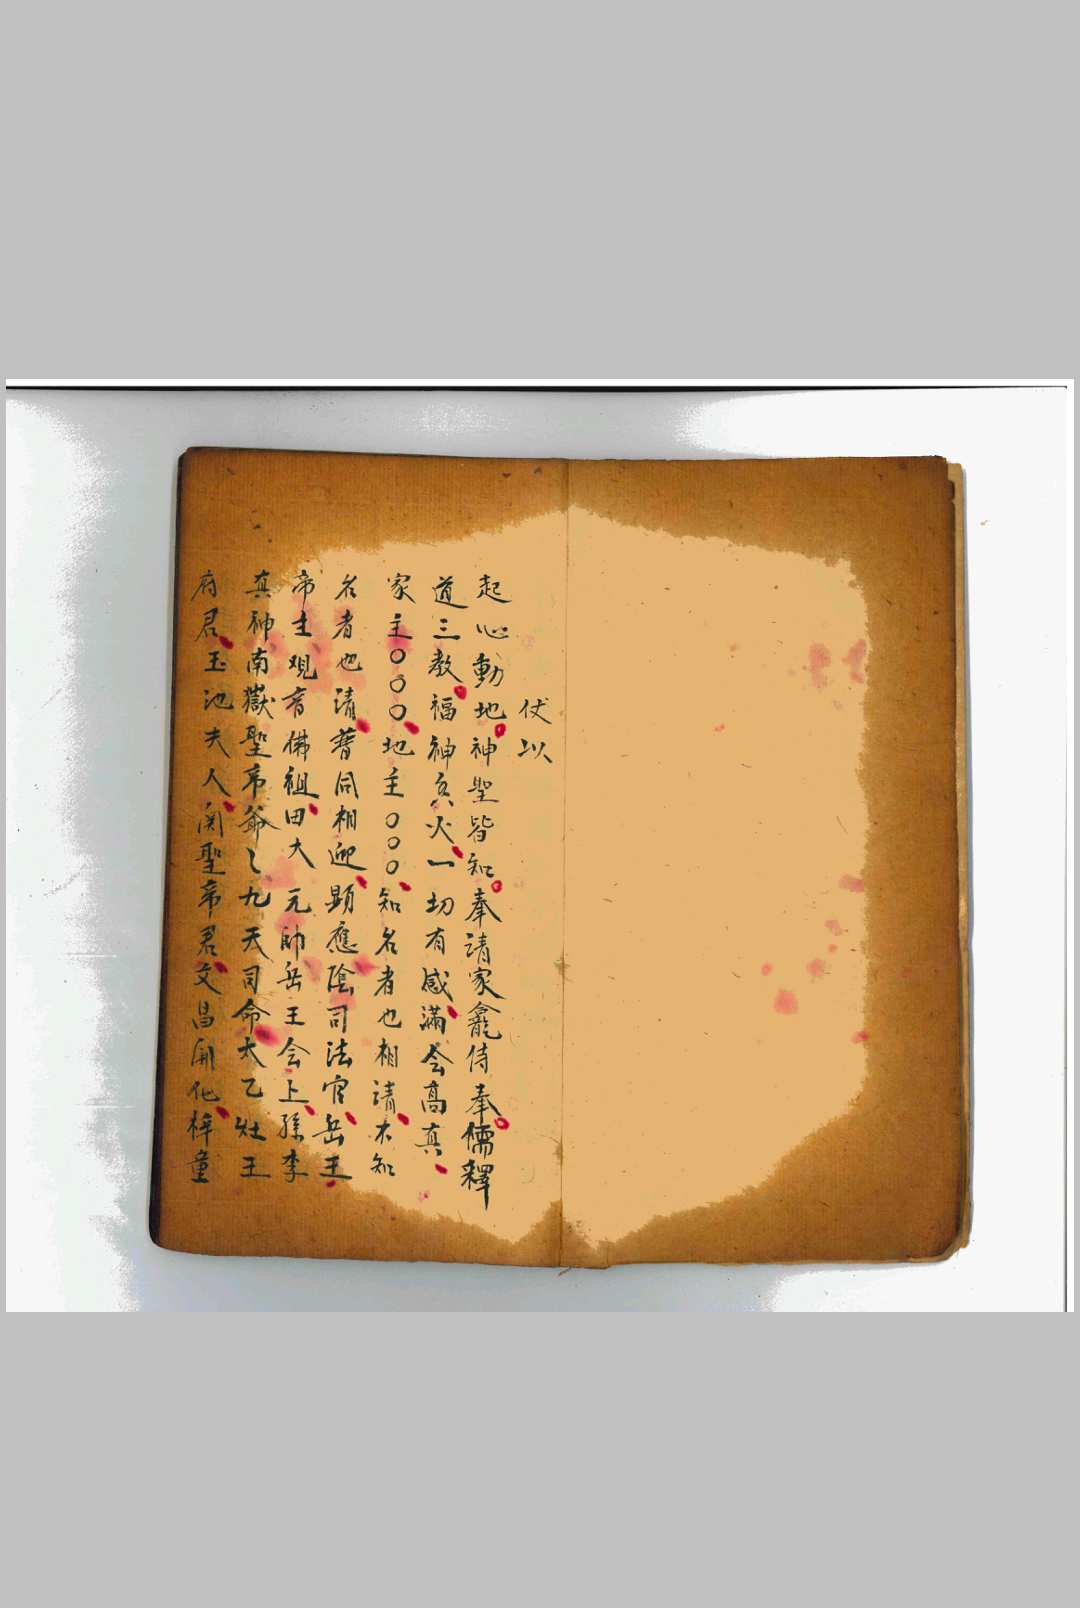 伏以
起心動地神聖皆知奉請家龕侍奉儒釋
道三教福神香火一切有感滿会高真
家主〇〇〇地主〇〇〇知名者也相請不知
名者也請普同相迎顕應陰司法官岳王
帝主观音佛祖田大元帥岳王会上孫李
真神南嶽聖帝爺〻九天司命太乙灶王
府君玉池夫人関聖帝君文昌開化梓童